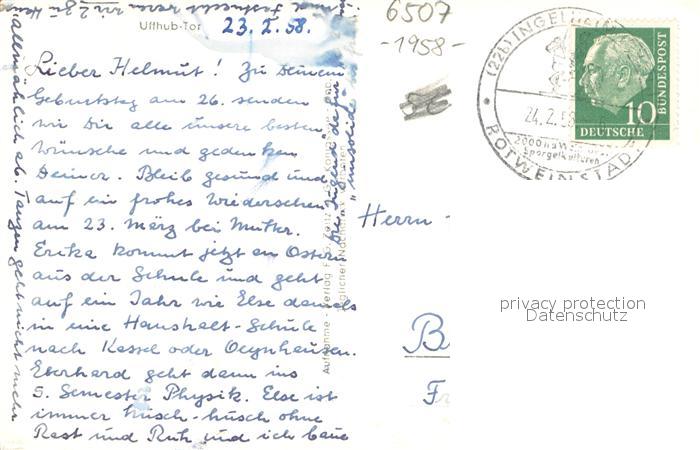 Uffhub-Tor
23. 2. 58.
Lieber Helmut! Zu Deinem
Geburtstag am 26. senden
wir Dir alle unsere besten
Wünsche und gedenken
Deiner. Bleib gesund und
auf ein frohes Wiedersehen
am 23. März bei Mutter.
Erika kommt jetzt an Ostern
aus der Schule und geht
auf ein Jahr wie Else damals
in eine Haushalt-Schule
nach Kassel oder Oeynhausen.
Eberhard geht dann ins
5. Semester Physik. Else ist
immer husch-husch ohne
Rast und Ruh und ich baue
allmählich ab. Tanzen geht nicht mehr
Aufnahme Verlag
6507
-1958-
(22b) INGELHEIM
24.2.58
Spargelkulturen
ROTWEINSTADT
10
DEUTSCHE
BUNDESPOST
Herrn
B
Fr
privacy protection
Datenschutz